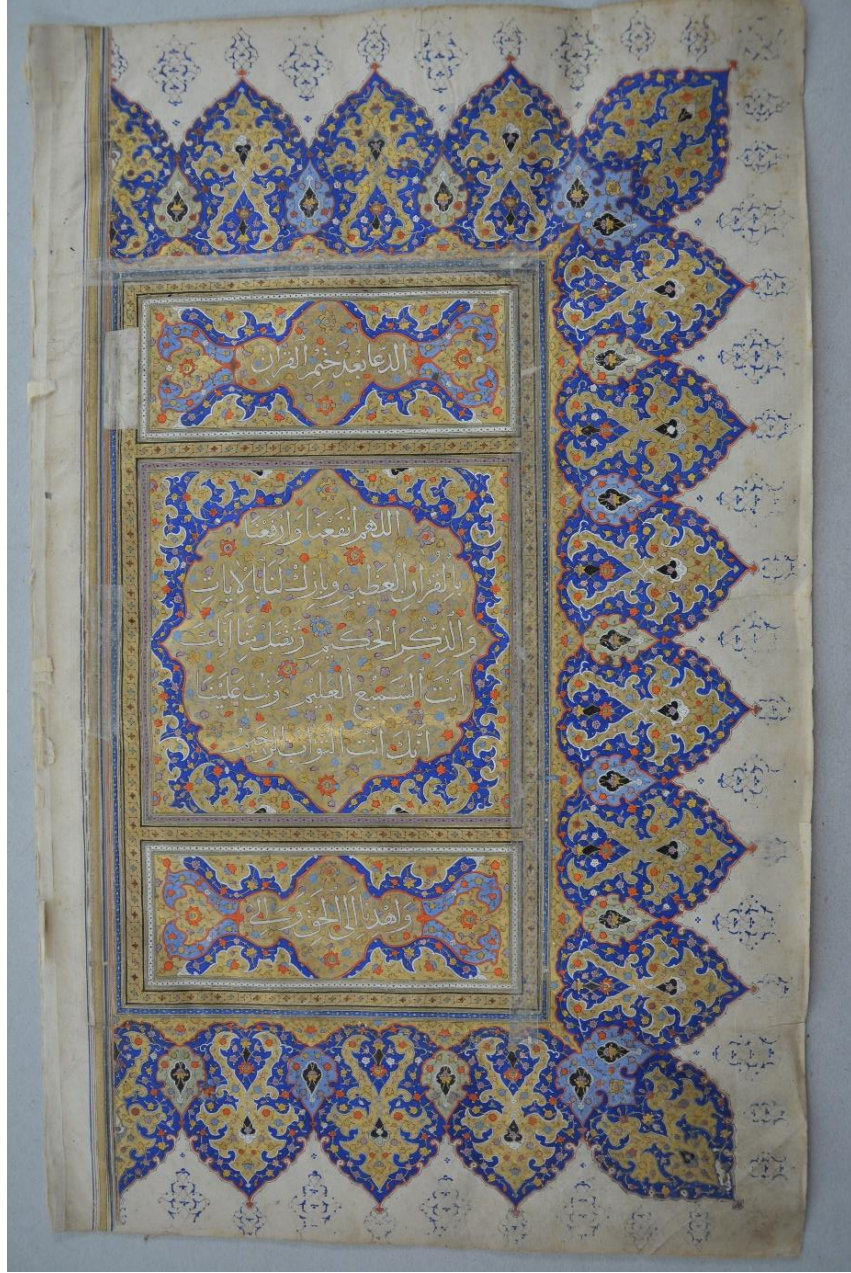 الدعا بعد ختم القرآن
اللهم انفعنا وارفعنا
بالقرآن العظيم وبارك لنا بالآيات
والذكر الحكيم وتقبل منا انك
انت السميع العليم وتب علينا
انك انت التواب الرحيم
واهدنا الى الحق والى